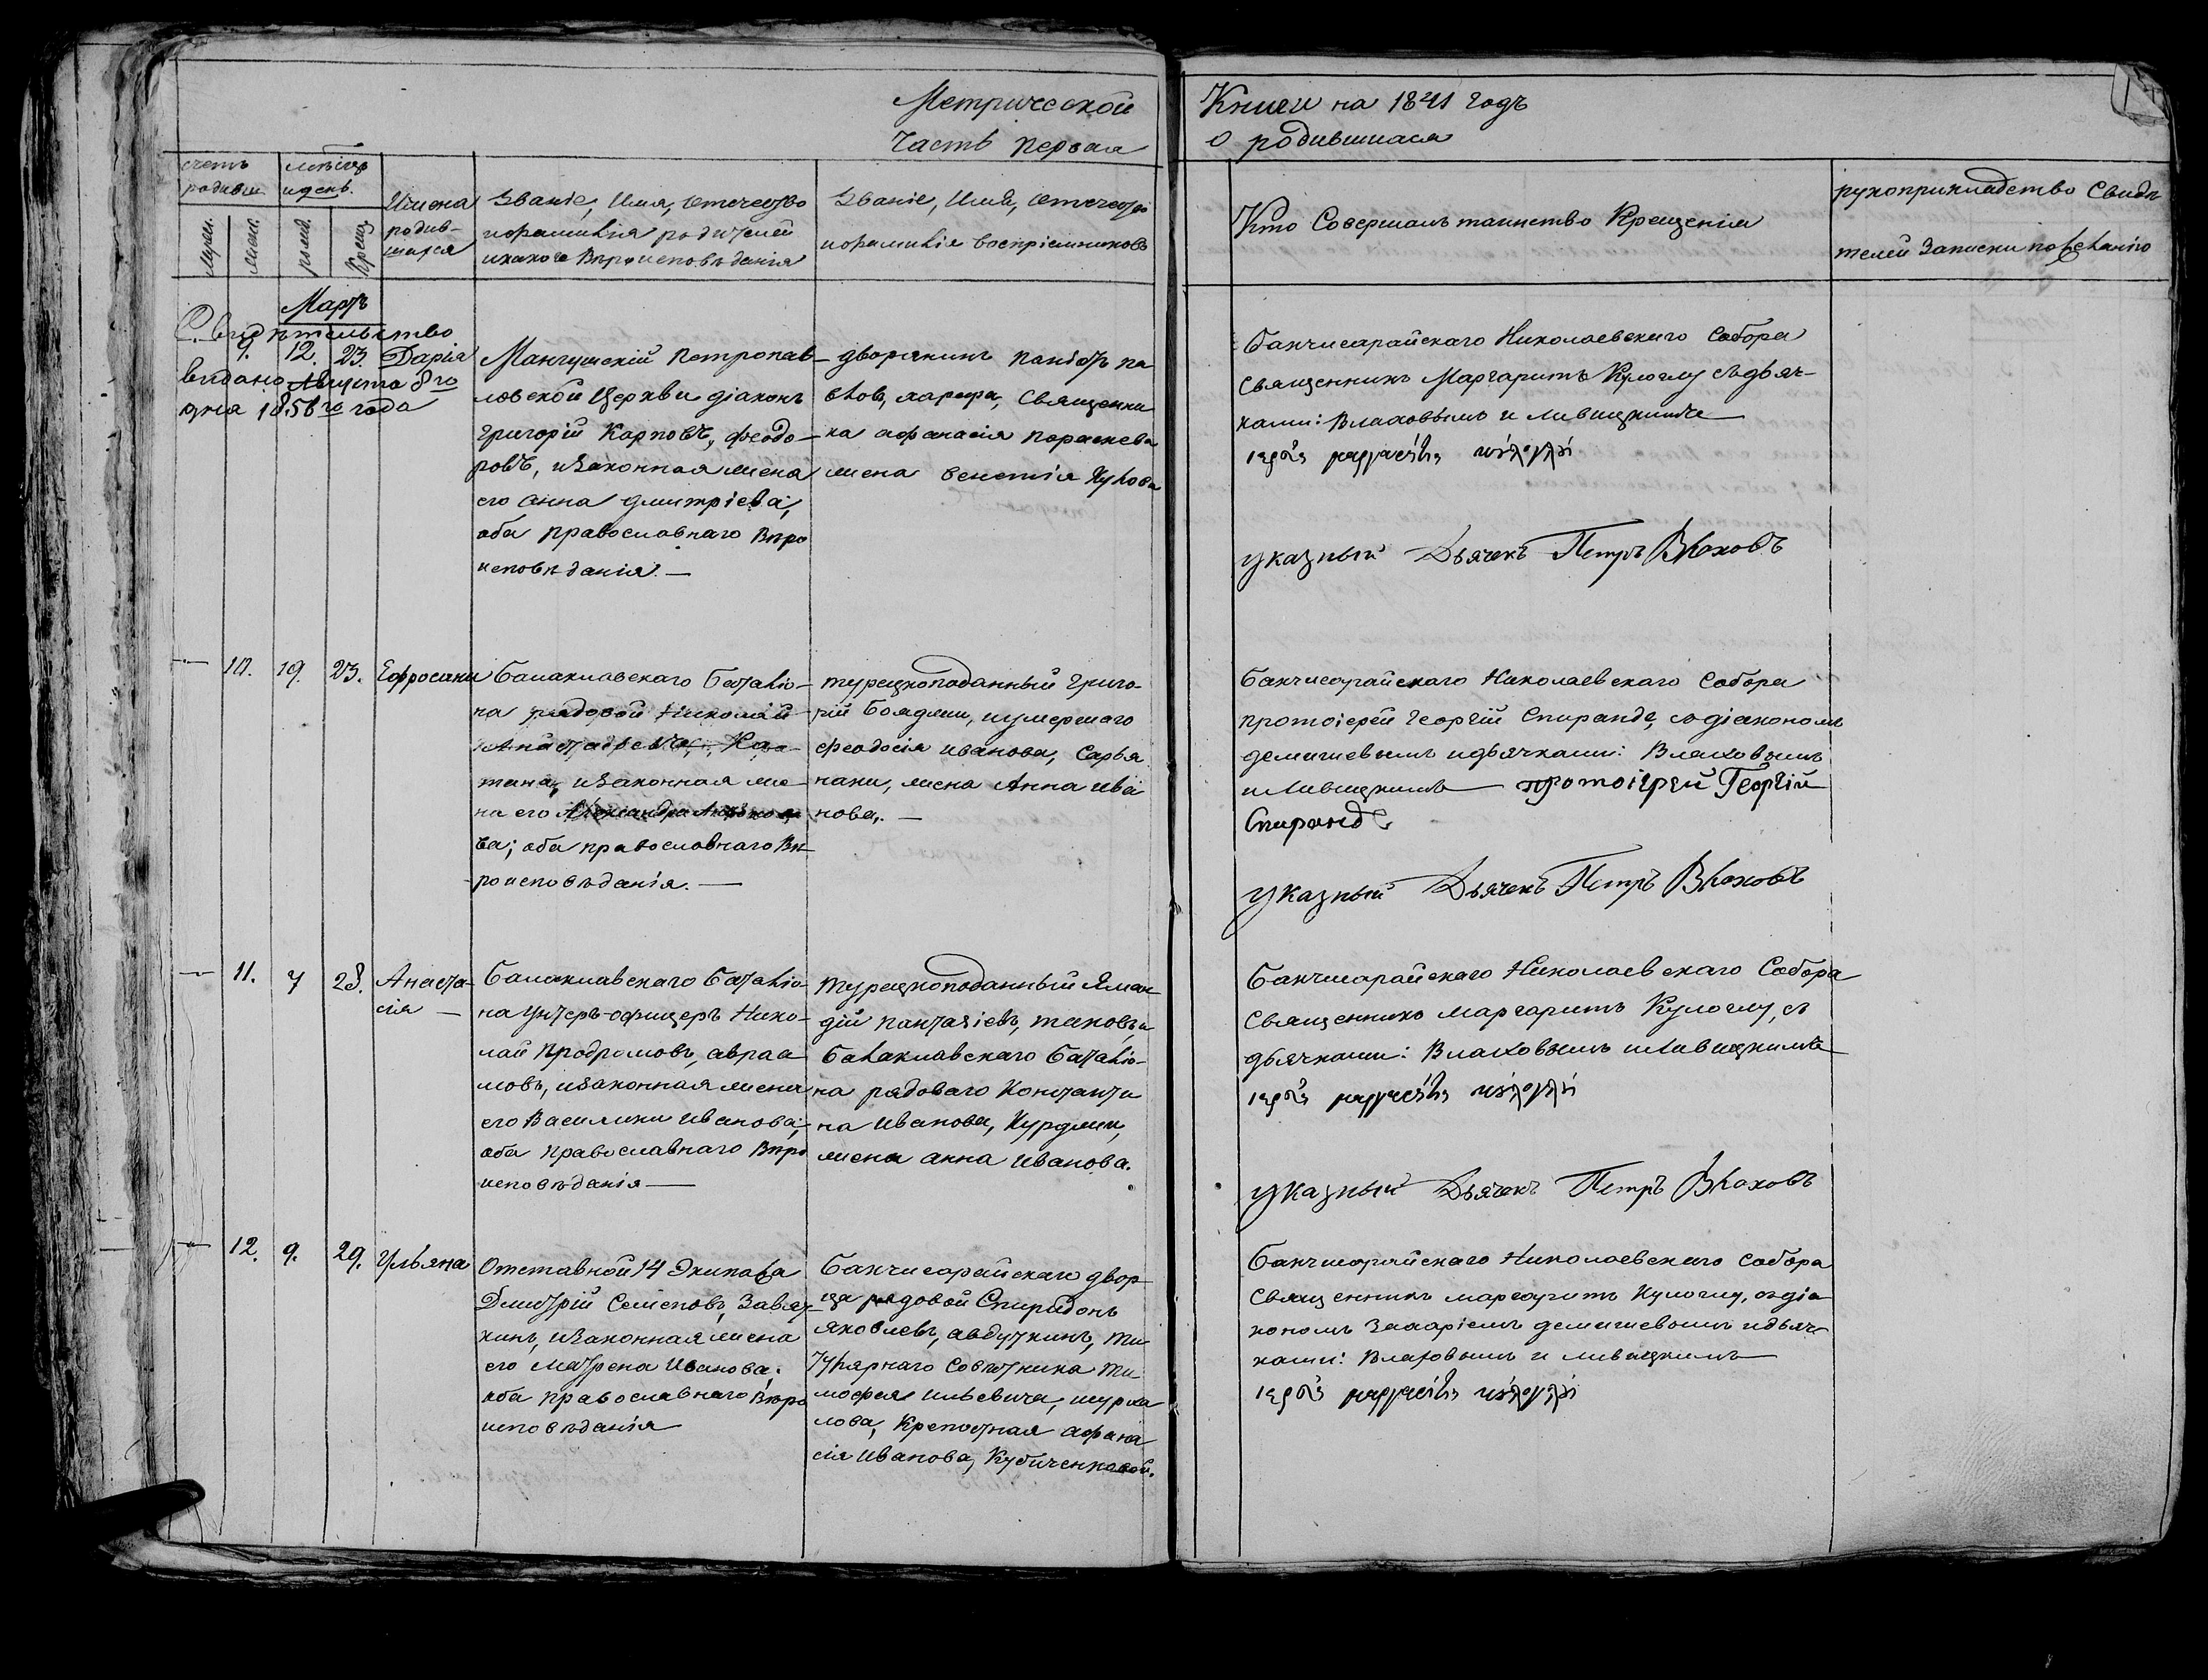 Метрической
Часть первая
Книги на 1841 годъ
о родившихся
счетъ родивш
мѣсяцъ и день.
мужеск.
женск.
рожд.
Крещ.
Имена родив-
шихся
Званіе, Имя, отечество
и фамилія родителей
и какого Вѣроисповѣданія
Званіе, Имя, отечество
и фамилія воспріемниковъ
Кто Совершалъ таинство Крещенія
рукоприкладство Свидѣ
телей Записки по желанію
Мартъ
Свидѣтельство
видано Августа 8го
дня 1858го года
9. 12. 23. Дарія
Мангушскій петропав-
ловской Церкви діаконъ
Григорій Карповъ, феодо-
ровъ, и Законная жена
его анна дмитріева,
оба православнаго Вѣро
исповѣданія. —
дворянинъ панаіотъ па
вловъ, харефа, Священни
ка афанасія параскева
жена венетія
Бахчисарайскаго Николаевскаго Собора
Священникъ Маргаритъ Кулоглу съ дьяч-
ками: Влаховымъ и ливицкимъ
указный Дьячекъ Петръ Влаховъ
— 10. 19. 23. Ефросини
Балаклавскаго баталіо-
на рядовой Николай
тана, и Законная же-
на его Александра
ва; оба православнаго Вѣ-
роисповѣданія. —
турецкоподанный Григо-
рій Бояджи, и умершаго
феодосія иванова, Сарья
наки, жена Анна ива
нова. —
Бахчисарайскаго Николаевскаго Собора
протоіерей Георгій Спиранде, съ діакономъ
демишевымъ и дьячками: Влаховымъ
и Ливицкимъ — протоіерей Георгій
Спиранде
указный Дьячекъ Петръ Влаховъ
— 11. 7 28. Анаста-
сія —
Балаклавскаго баталіо-
на унтеръ-офицеръ Нико-
лай продромовъ, авраа
мовъ, и Законная жена
его Василики иванова;
оба православнаго Вѣро
исповѣданія —
турецкоподанный Яман
дій пантазіевъ,
балаклавскаго баталіо-
на рядоваго Константи
на иванова, Курджи,
жена анна иванова.
Бахчисарайскаго Николаевскаго Собора
Священникъ маргаритъ Кулоглу, съ
дьячками: Влаховымъ и Ливицкимъ
указный Дьячекъ Петръ Влаховъ
— 12. 9. 29. Ульяна
Отставной 14 Экипажа
Дмитрій Семеновъ,
кинъ, и Законная жена
его матрена иванова;
оба православнаго Вѣро
исповѣданія
Бахчисарайскаго двор
ца рядовой Спиридонъ
яковлевъ, авдуткинъ, ти
тулярнаго Советника ти
мофея ильевича,
лова, Крепостная афана
сія иванова, Кубиченковой.
Бахчисарайскаго Николаевскаго собора
Священникъ маргаритъ Кулоглу, съ діа
кономъ Захаріемъ демишевымъ и дьяч-
ками: Влаховымъ и ливицкимъ